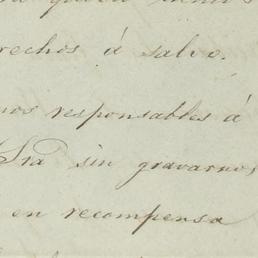 rechos á salvo.
nos responsables á
Sra sin gravarnos
en recompensa